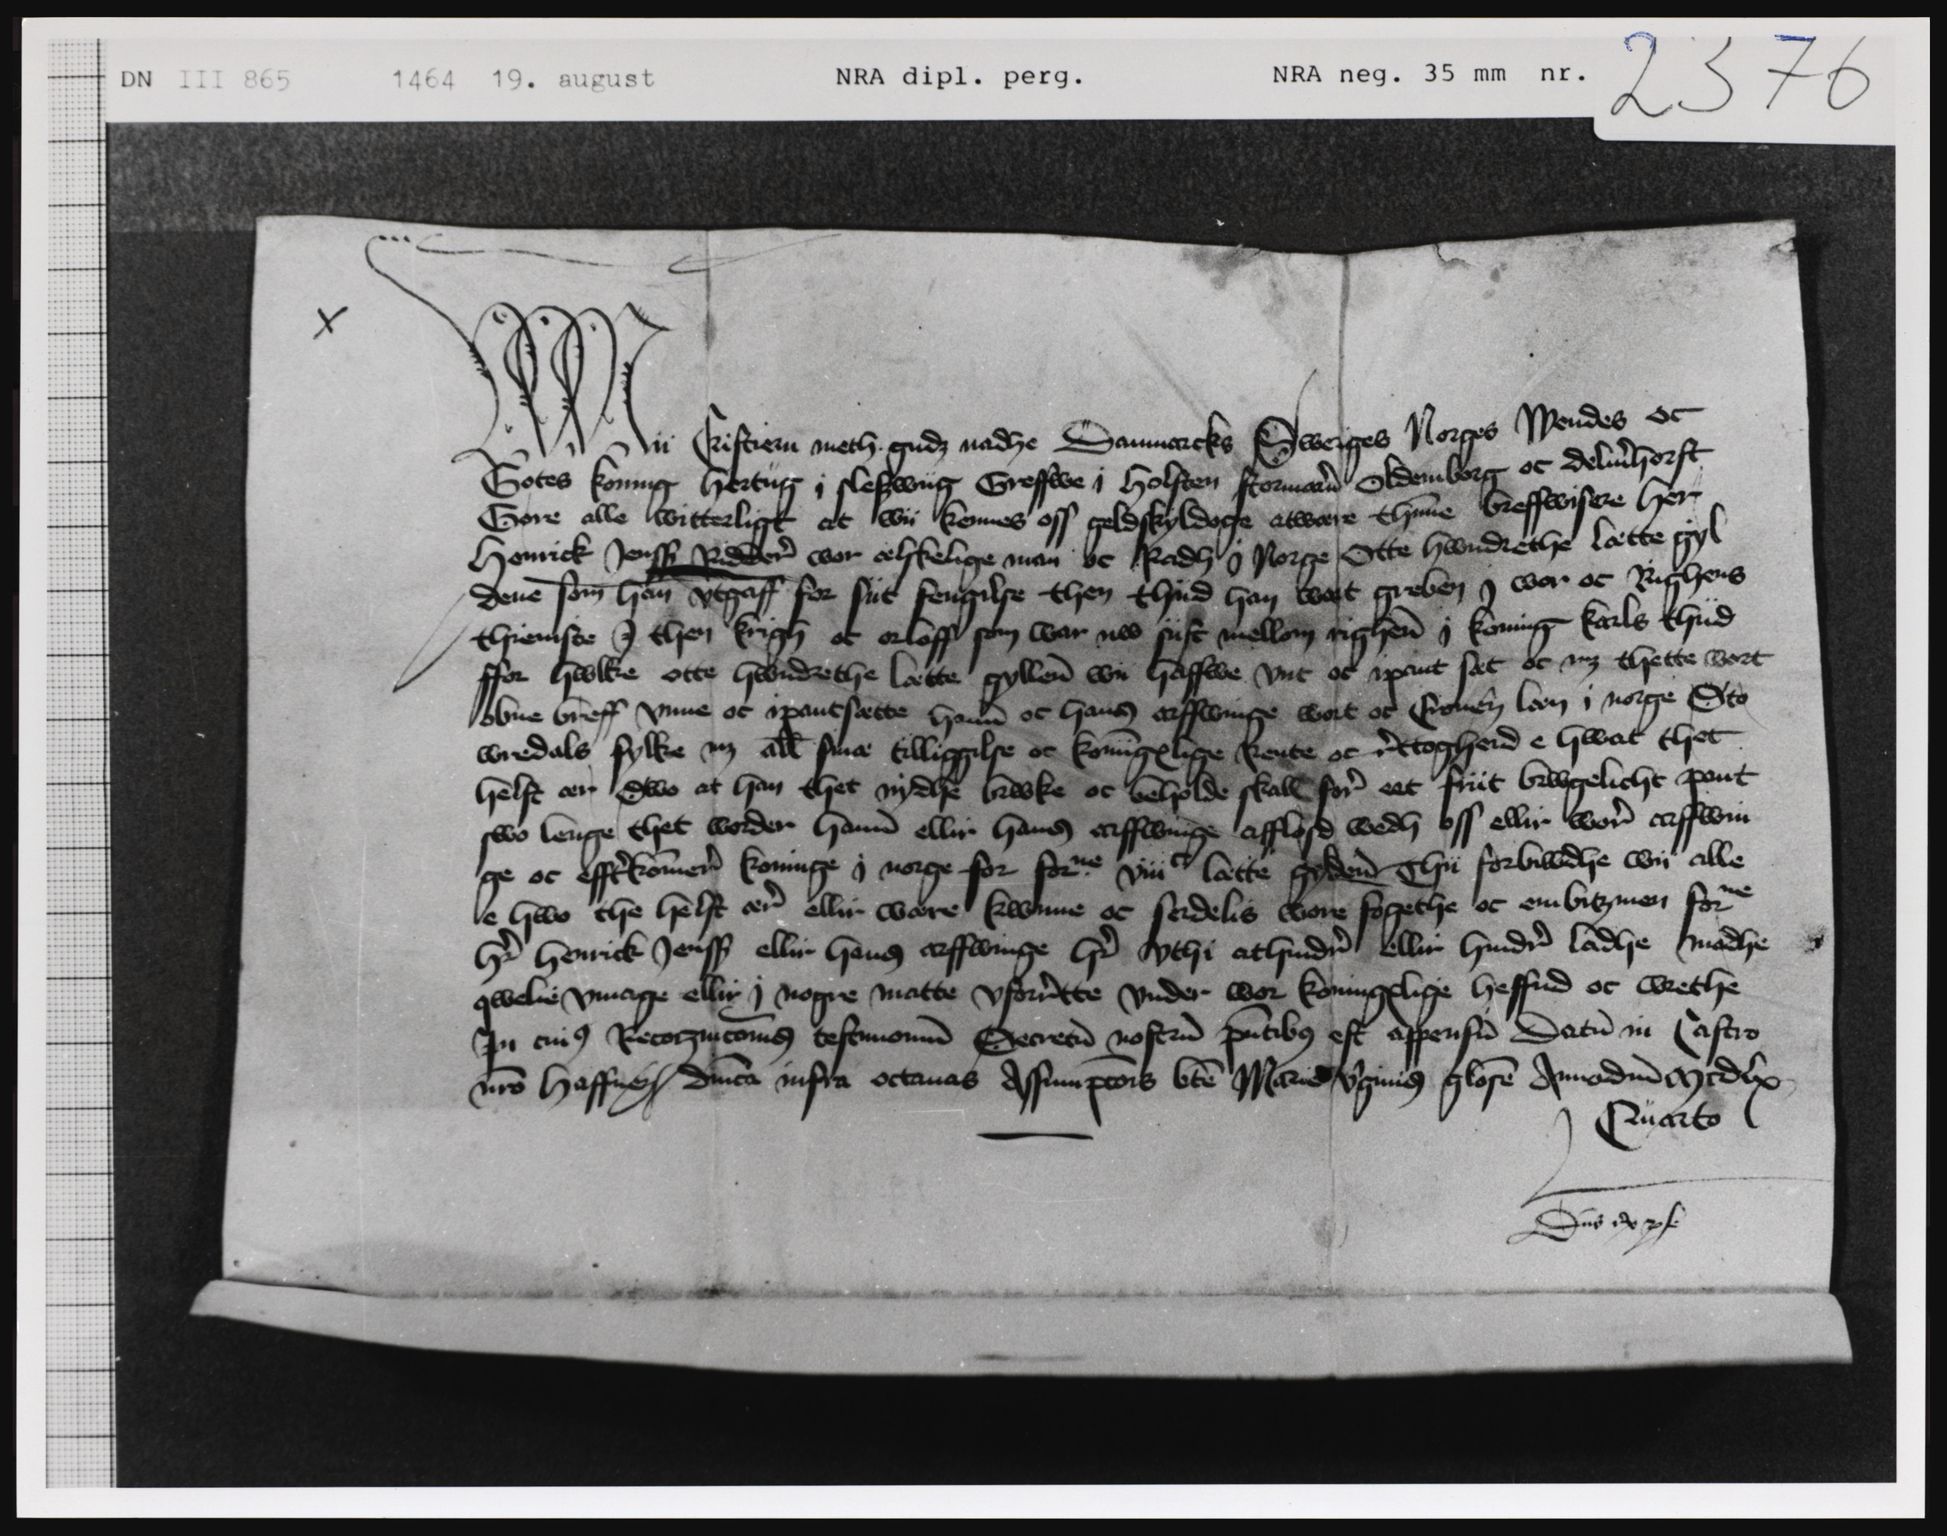 DN III 865 1464 19. august NRA dipl. perg. NRA neg. 35 mm nr. 2376
x
Wii Cristiern meth gudz nadhe Danmarcks Sweriges Norges Wendes oc
Gotes koning hertug i slesswiig Greffwe i Holsten stormarn Oldemborg oc delmenhorst
Gore alle witterligt at wii kennes oss geldskyldoge atwære thenne breffwisere her
Henrick Jenss Ridder wor ælskelige man oc Radh i Norge Otte hwndrethe lætte gyl
dene som han vtgaff for siit fengilse then thiid han wort greben i wor oc Righens
thieniste J then krigh oc orloff som war nw siist mellom righen i koning karls thiid
ffor hwlke otte hwndrethe lætte gyllen wii haffwe vnt oc ipant sæt oc mz thette wort
obne breff vnne oc ipantsætte hanum oc hans arffwinge wort oc Cronen læn i norge Sto
wredals sylke mz all sinæ tilliggilse oc koningxlige Rente oc rettogheid e hwat thet
helst ær Swo at han thet nydhe brwke oc beholde skall for eet friit brwgelicht pant
swo lenge thet worder hanum ellir hans arffwinge affløsd wedh oss ellir wore arffwin
ge oc effterkomere koninge i norge for forne viiic lætte gylden Thii forbiwdhe wii alle
e hwo the helst ære ellir wære kwnne oc serdelis wore fogethe oc embitzmen forne
her Henrick Jenss ellir hans arffwinge her vthi athindre ellir hindre ladhe madhe
qwelie vmage ellir i nogre matte vforrette vnder wor koningxlige heffnd oc wrethe
Jn cuius Recognicionis testimonium Secretum nostrum presentibus est appensum Datum in Castro
nostro Haffnensi dominica infra octauas Assumpcionis beate Marie virginis gloriose Anno domini Mcdlx
Quarto
Dns rex per se